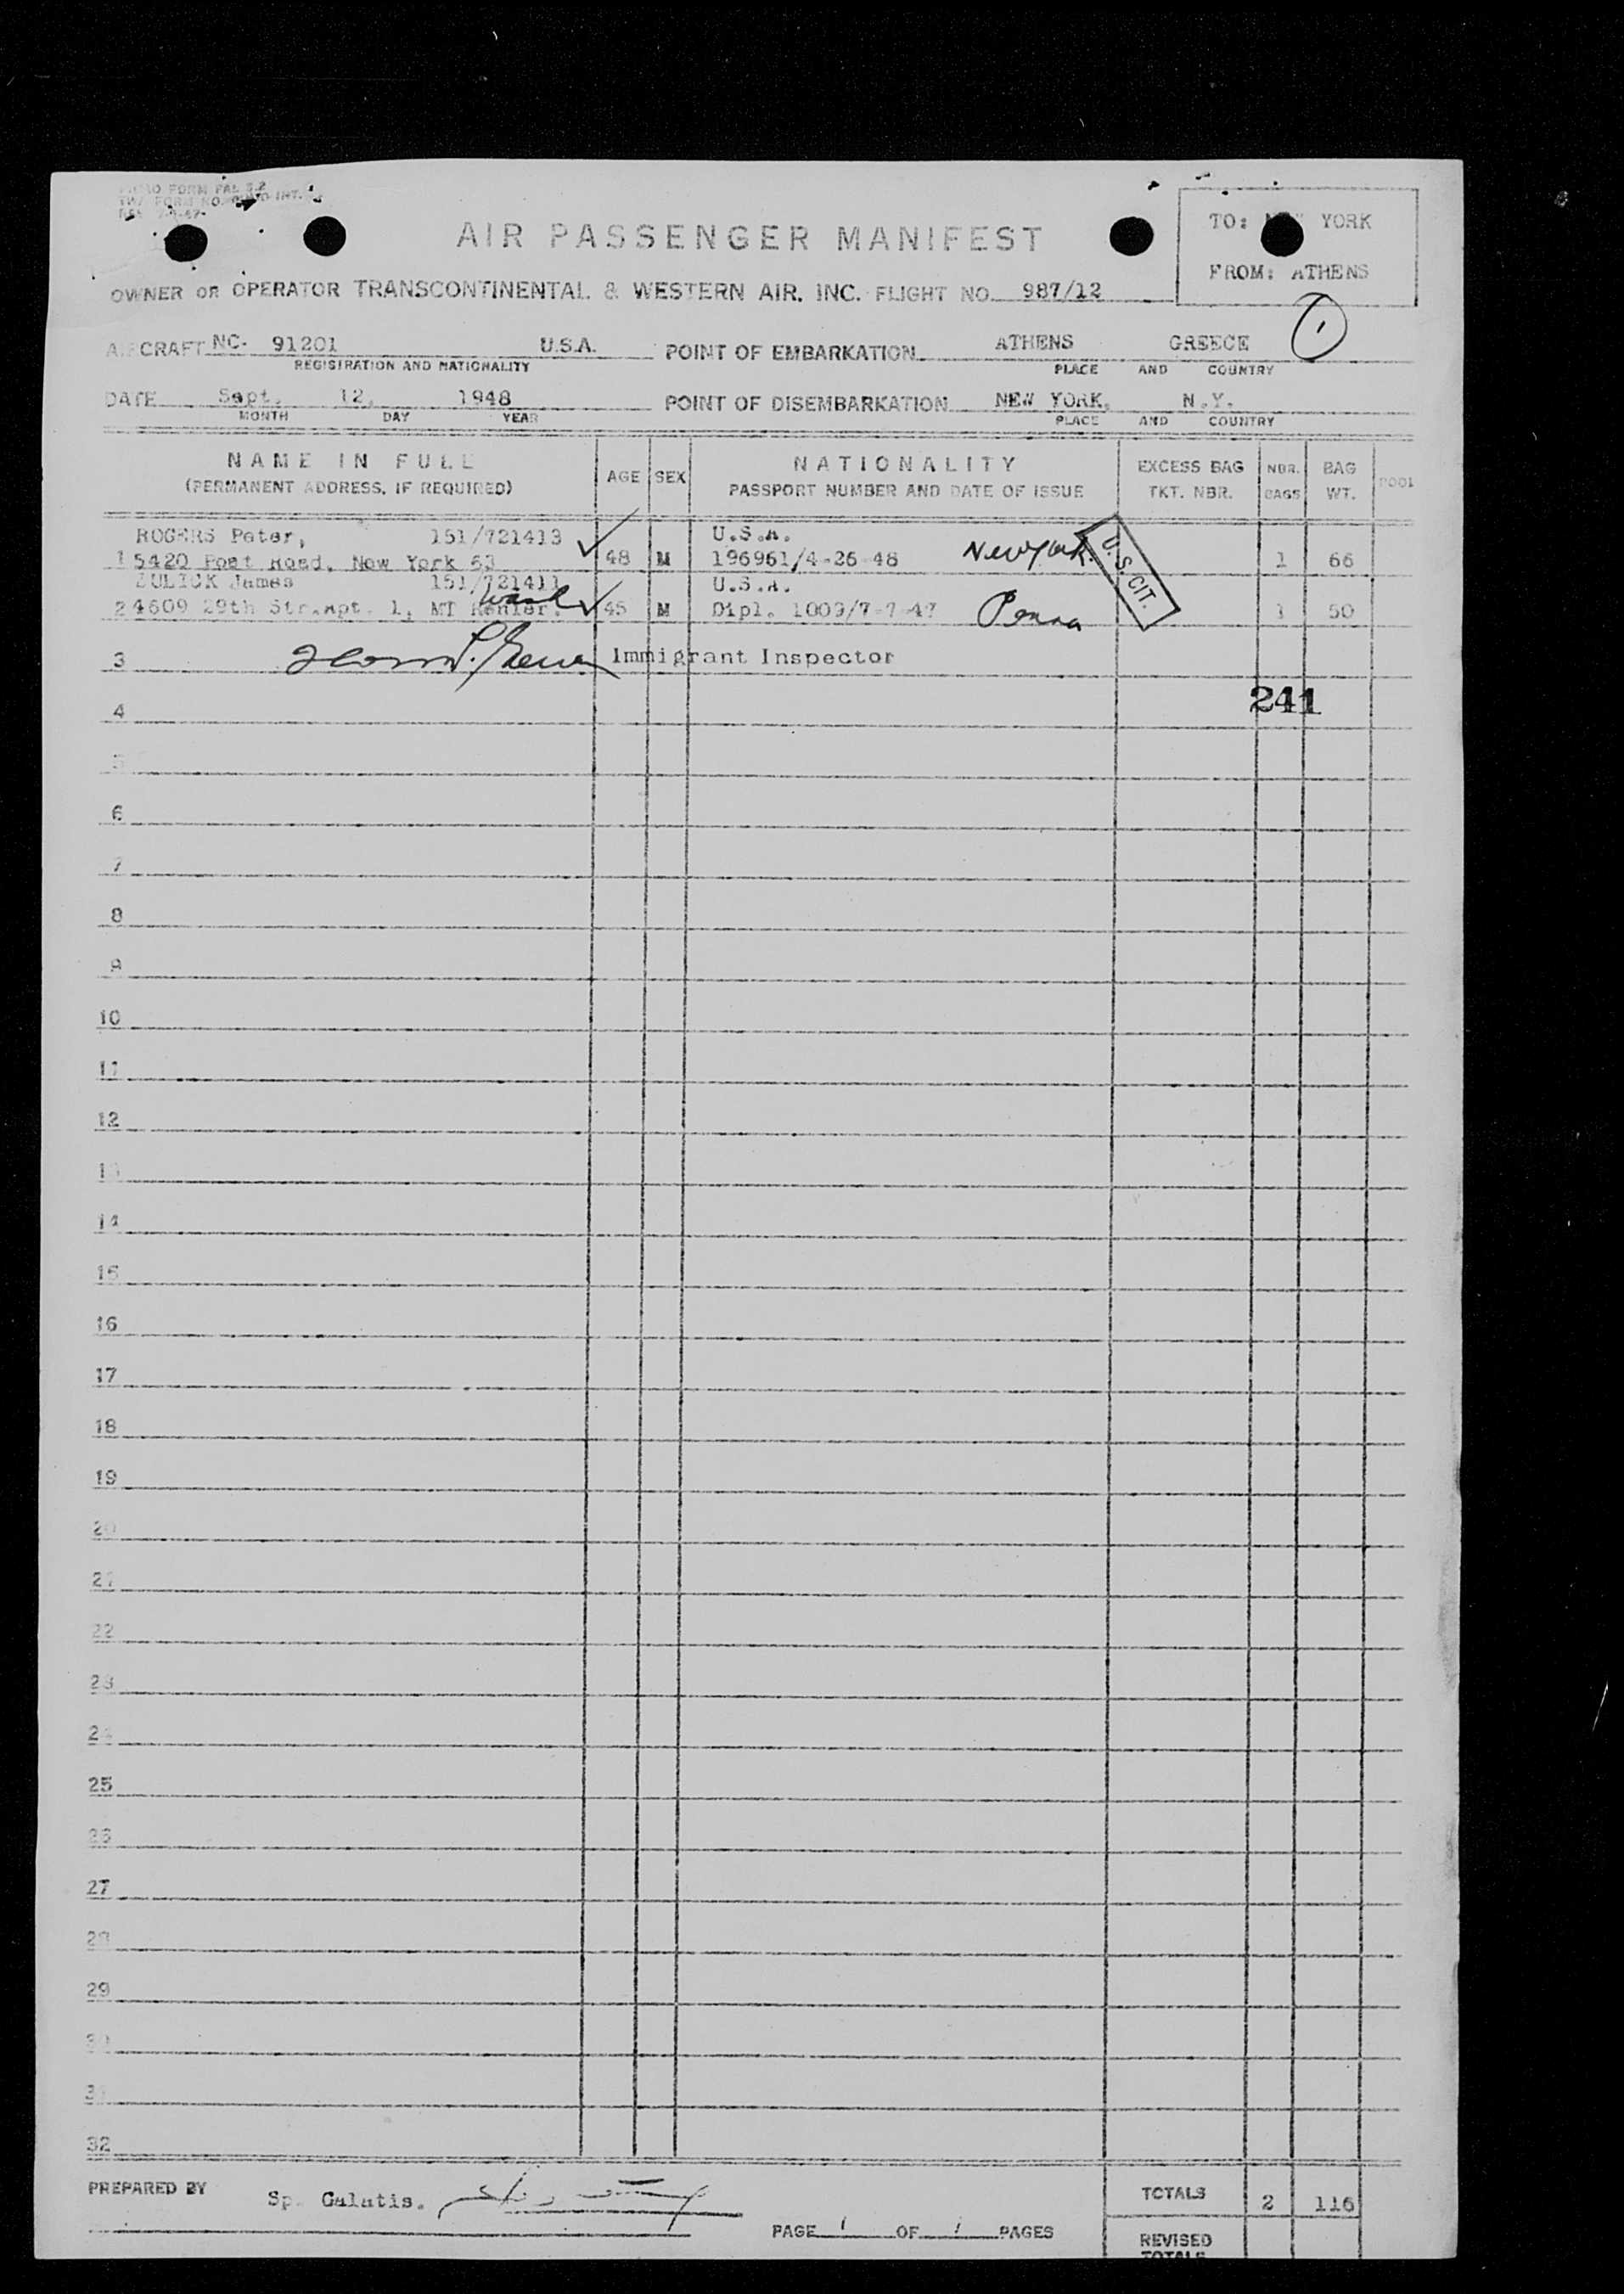 FORM FAL 3.2
AIR PASSENGER MANIFEST
TO: NEW YORK
FROM: ATHENS
OWNER OR OPERATOR TRANSCONTINENTAL & WESTERN AIR, INC. FLIGHT NO. 987/12
1
AIRCRAFT NC- 91201 U.S.A. POINT OF EMBARKATION ATHENS GREECE
REGISTRATION AND NATIONALITY PLACE AND COUNTRY
DATE Sept. 12, 1948 POINT OF DISEMBARKATION NEW YORK, N.Y.
MONTH DAY YEAR PLACE AND COUNTRY
NAME IN FULL AGE SEX NATIONALITY EXCESS BAG NBR. BAG POOL
(PERMANENT ADDRESS, IF REQUIRED) PASSPORT NUMBER AND DATE OF ISSUE TKT. NBR. BAGS WT.
ROGERS Peter, 151/721413 U.S.A.
1 5420 Post Road, New York 63 48 M 196961/4-26-48 New York. U.S. CIT. 1 66
ZULICK James 151/721411 U.S.A.
Wash
2 4609 29th Str.Apt. 1, MT 45 M Dipl. 1009/7-7-47 Penna 1 50
3 Immigrant Inspector
241
4
5
6
7
8
9
10
11
12
13
14
15
16
17
18
19
20
21
22
23
24
25
26
27
28
29
30
31
32
PREPARED BY Sp. Galatis. TOTALS 2 116
PAGE 1 OF 1 PAGES REVISED
TOTALS